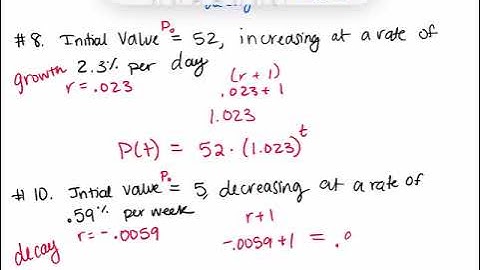 #8. Initial Value P₀ = 52, increasing at a rate of
growth 2.3% per day
r = .023
(r + 1)
.023 + 1
1.023
P(t) = 52 · (1.023)^t
#10. Intial value P₀ = 5, decreasing at a rate of
.59% per week
decay r = -.0059
r + 1
-.0059 + 1 = .9